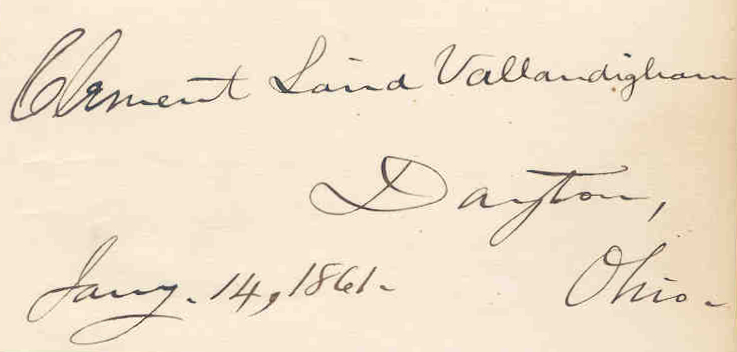 Clement Laird Vallandigham
Dayton,
Jany. 14, 1861. Ohio.